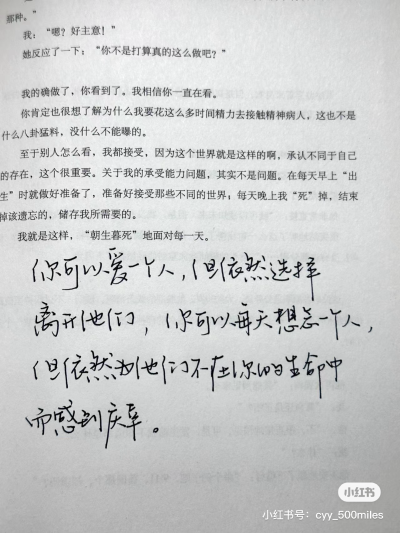 那种。”
我：“嗯？好主意！”
她反应了一下：“你不是打算真的这么做吧？”
我的确做了，你看到了。我相信你一直在看。
你肯定也很想了解为什么我要花这么多时间精力去接触精神病人，这也不是
什么八卦猛料，没什么不能曝的。
至于别人怎么看，我都接受，因为这个世界就是这样的啊，承认不同于自己
的存在，这个很重要。关于我的承受能力问题，其实不是问题。在每天早上“出
生”时就做好准备了，准备好接受那些不同的世界；每天晚上我“死”掉，结束
掉该遗忘的，储存我所需要的。
我就是这样，“朝生暮死”地面对每一天。
你可以爱一个人，但依然选择
离开他们，你可以每天想念一个人，
但依然为他们不在你的生命中
而感到庆幸。
小红书
小红书号：cyy_500miles